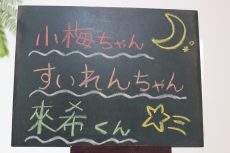 小梅ちゃん
すいれんちゃん
來希くん